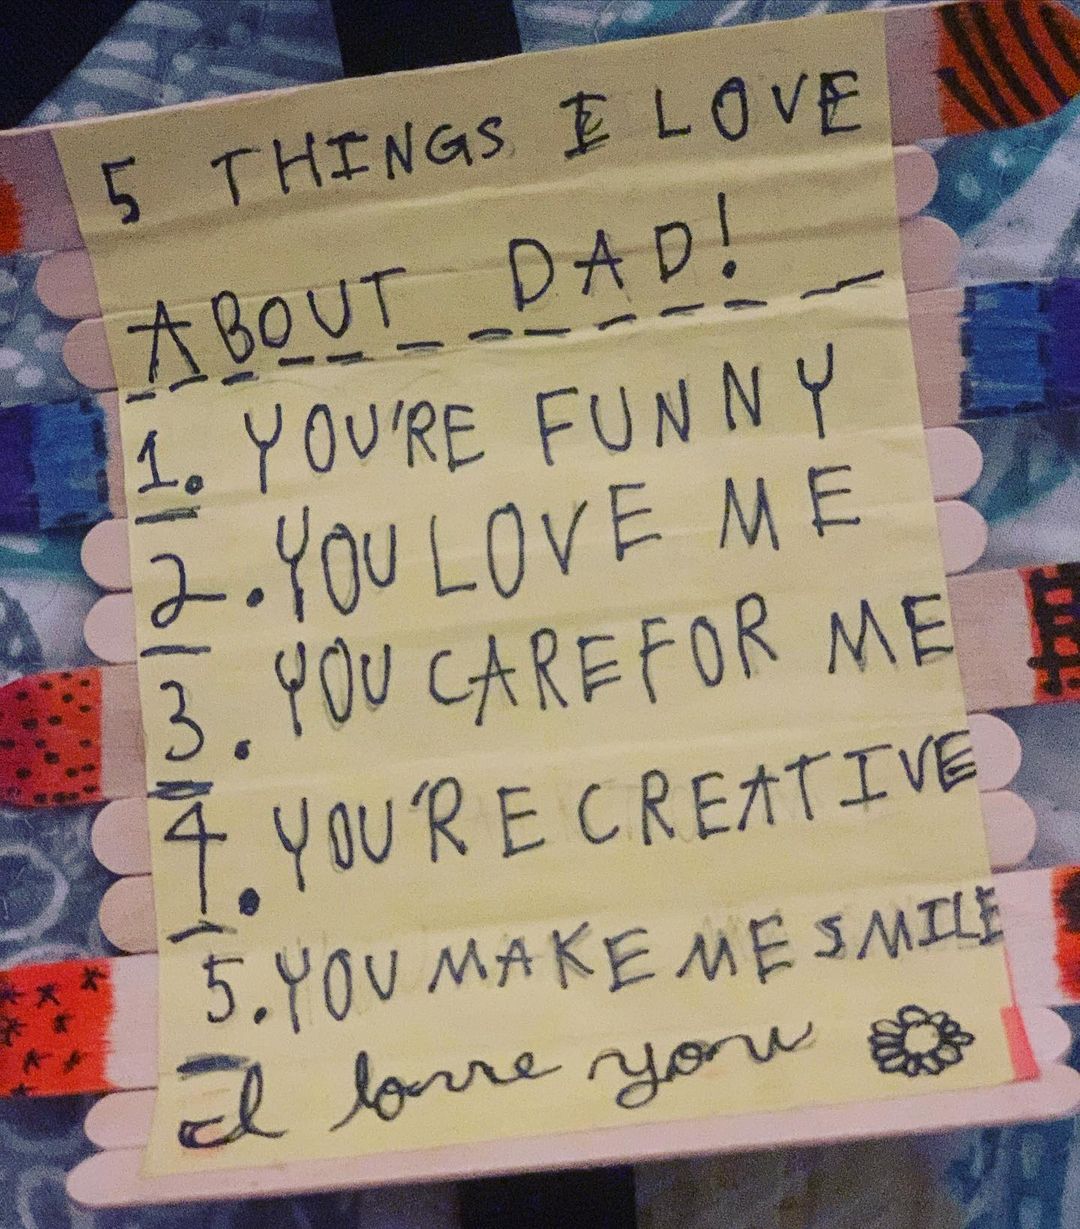 5 THINGS I LOVE
ABOUT DAD!
1. YOU'RE FUNNY
2. YOU LOVE ME
3. YOU CARE FOR ME
4. YOU'RE CREATIVE
5. YOU MAKE ME SMILE
I love you